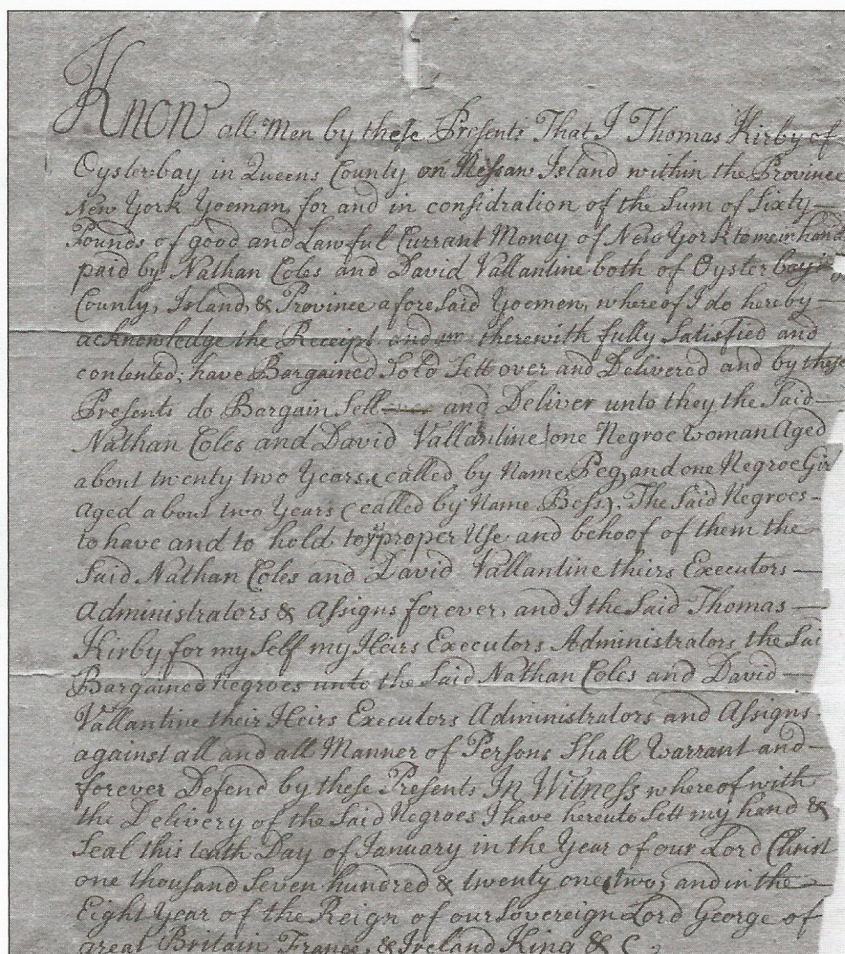 Know all Men by these Presents That I Thomas Kirby of
Oyster-bay in Queens County on Nassaw Island within the Province
New York Yoeman, for and in considration of the Sum of Sixty
Pounds of good and Lawful Currant Money of New York to me in hand
paid by Nathan Coles and David Vallantine both of Oyster bay
County, Island, & Province aforesaid Yoemen, whereof I do hereby
acknowledge the Receipt and therewith fully Satisfied and
contented, have Bargained Sold Sett over and Delivered and by these
Presents do Bargain Sell and Deliver unto they the Said
Nathan Coles and David Vallantine one Negroe woman Aged
about twenty two Years (called by Name Peg, and one Negroe Girl
Aged about two Years (called by Name Bess). The Said Negroes
to have and to hold to ye proper Use and behoof of them the
Said Nathan Coles and David Vallantine theirs Executors
Administrators & Assigns forever, and I the Said Thomas
Kirby for my Self my Heirs Executors Administrators the Sai
Bargained Negroes unto the Said Nathan Coles and David
Vallantine their Heirs Executors Administrators and Assigns
against all and all Manner of Persons Shall Warrant and
forever Defend by these Presents In Witness whereof with
the Delivery of the Said Negroes I have hereunto Sett my hand &
Seal this tenth Day of January in the Year of our Lord Christ
one thousand Seven hundred & twenty one, two; and in the
Eight Year of the Reign of our Sovereign Lord George of
great Britain France, & Ireland King & C